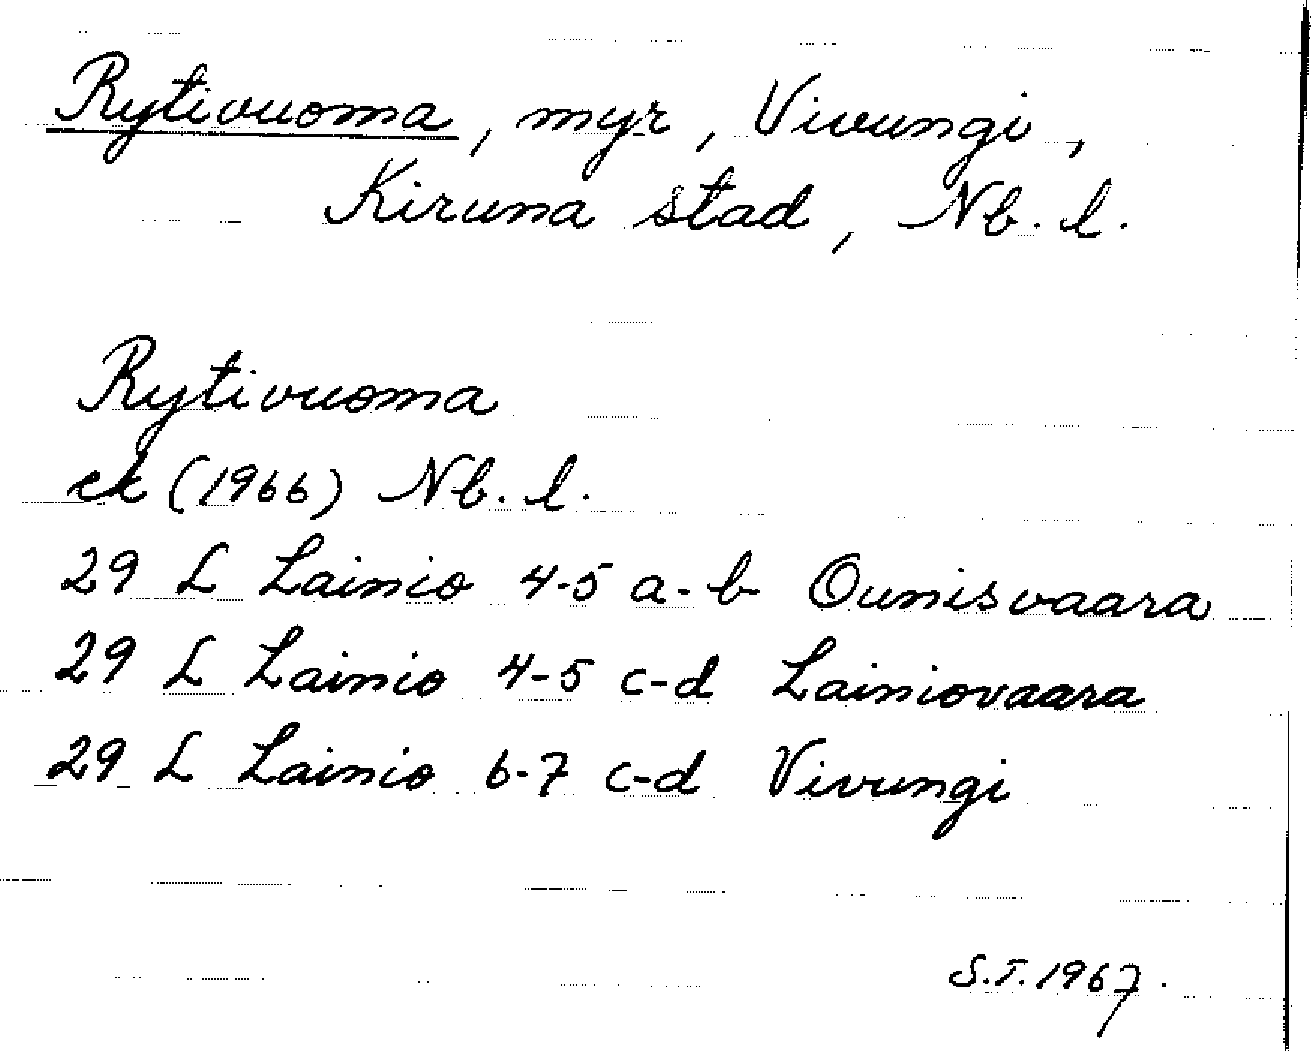 Rytivuoma, myr, Vivungi,
Kiruna stad, Nb. l.
Rytivuoma
ek (1966) Nb. l.
29 L Lainio 4-5 a-b Ounisvaara
29 L Lainio 4-5 c-d Lainiovaara
29 L Lainio 6-7 c-d Vivungi
S.T. 1967.